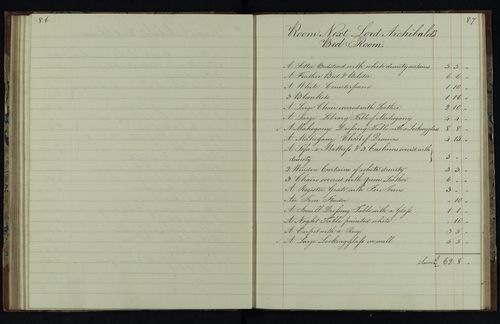 86
87
Room Next Lord Archibald's
Bed Room.
A Setter Bedstead with white dimity curtains 5 5 -
A Feather Bed & Bolster 6 6 -
A White Counterpane 1 10 -
3 Blankets 1 16 -
A Large Chair covered with Leather 2 10 -
A Large Library Table of Mahogany
A Mahogany Dressing Table with a Lookingglass 8 8 -
A Mahogany Chest of Drawers 3 13 -
A Sofa a Mattress & 3 Cushions covered with
dimity 5 - -
2 Window Curtains of white dimity 3 3 -
3 Chairs covered with green Leather
A Register Grate with Fire Irons 3 - -
An Iron Fender - 10 -
A Small Dressing Table with a Glass 1 1 -
A Night Table painted white - 10 -
A Carpet with a Rug 3 5 -
A Large Lookingglass in wall 5 5 -
Sum £ 62 8 -